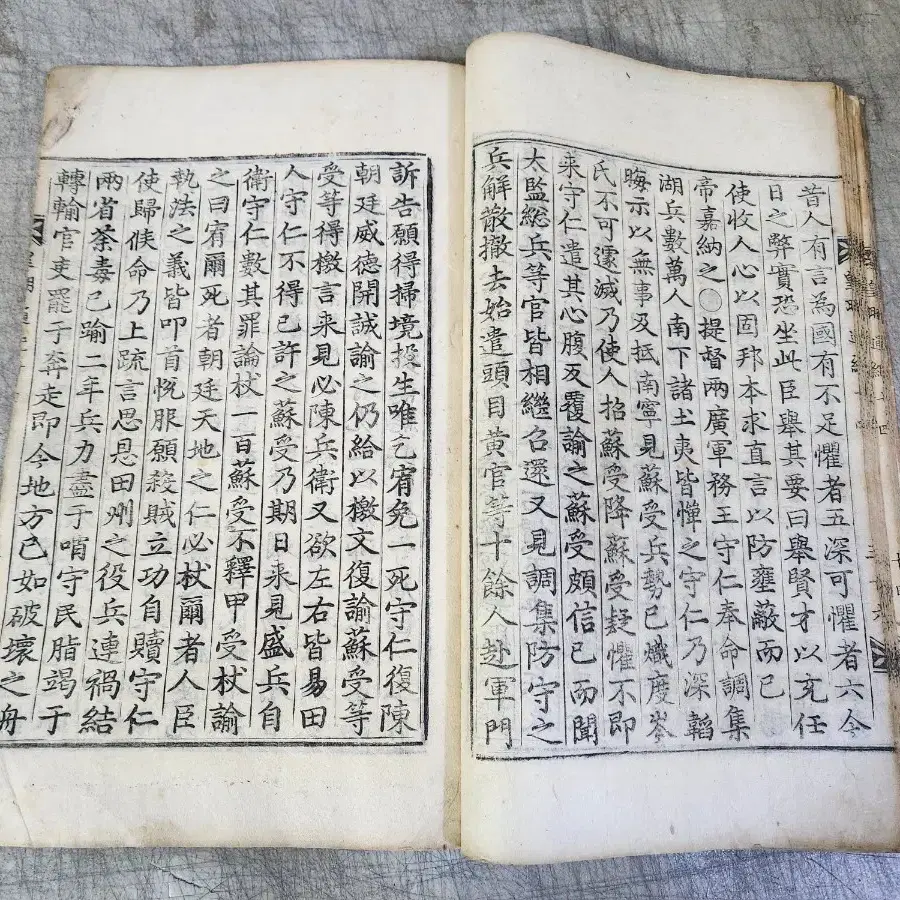 昔人有言為國有不足懼者五深可懼者六今
日之弊實恐坐此臣舉其要曰舉賢才以充任
使收人心以固邦本求直言以防壅蔽而已
帝嘉納之○提督兩廣軍務王守仁奉命調集
湖兵數萬人南下諸土夷皆憚之守仁乃深韜
晦示以無事及抵南寧見蘇受兵勢已熾度岑
氏不可遽滅乃使人招蘇受降蘇受疑懼不即
来守仁遣其心腹反覆諭之蘇受頗信已而聞
太監総兵等官皆相継召還又見調集防守之
兵解散撤去始遣頭目黄官等十餘人赴軍門
訴告願得掃境投生唯乞宥免一死守仁復陳
朝廷威德開誠諭之仍給以檄文復諭蘇受等
受等得檄言来見必陳兵衛又欲左右皆易田
人守仁不得已許之蘇受乃期日来見盛兵自
衛守仁數其罪論杖一百蘇受不釋甲受杖諭
之曰宥爾死者朝廷天地之仁必杖爾者人臣
執法之義皆叩首悦服願殺賊立功自贖守仁
使歸候命乃上疏言思恩田州之役兵連禍結
兩省荼毒已踰二年兵力盡于哨守民脂竭于
轉輸官吏罷于奔走即今地方已如破壞之舟